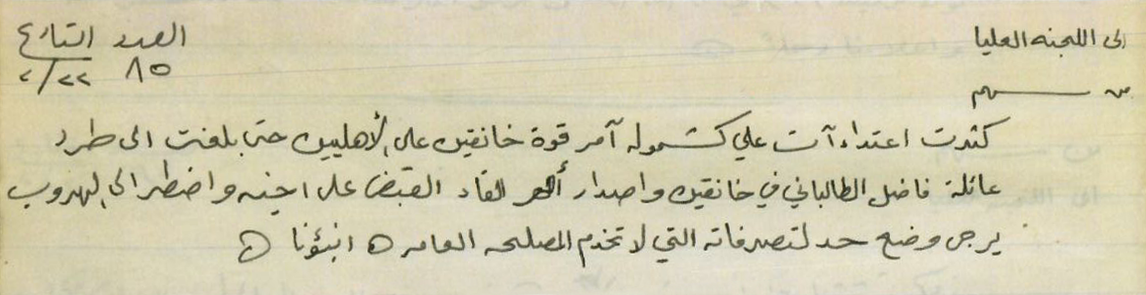 الى اللجنه العليا
العدد التاريخ
٨٥ ٢٢/٢
من سهم
كثرت اعتداءآت علي كشموله آمر قوة خانقين على الأهليين حتى بلغت الى طرد
عائلة فاضل الطالباني في خانقين واصدار أمر القاء القبض على اخيه واضطر الى الهروب
يرجى وضع حد لتصرفاته التي لا تخدم المصلحه العامه ه انبؤنا ه